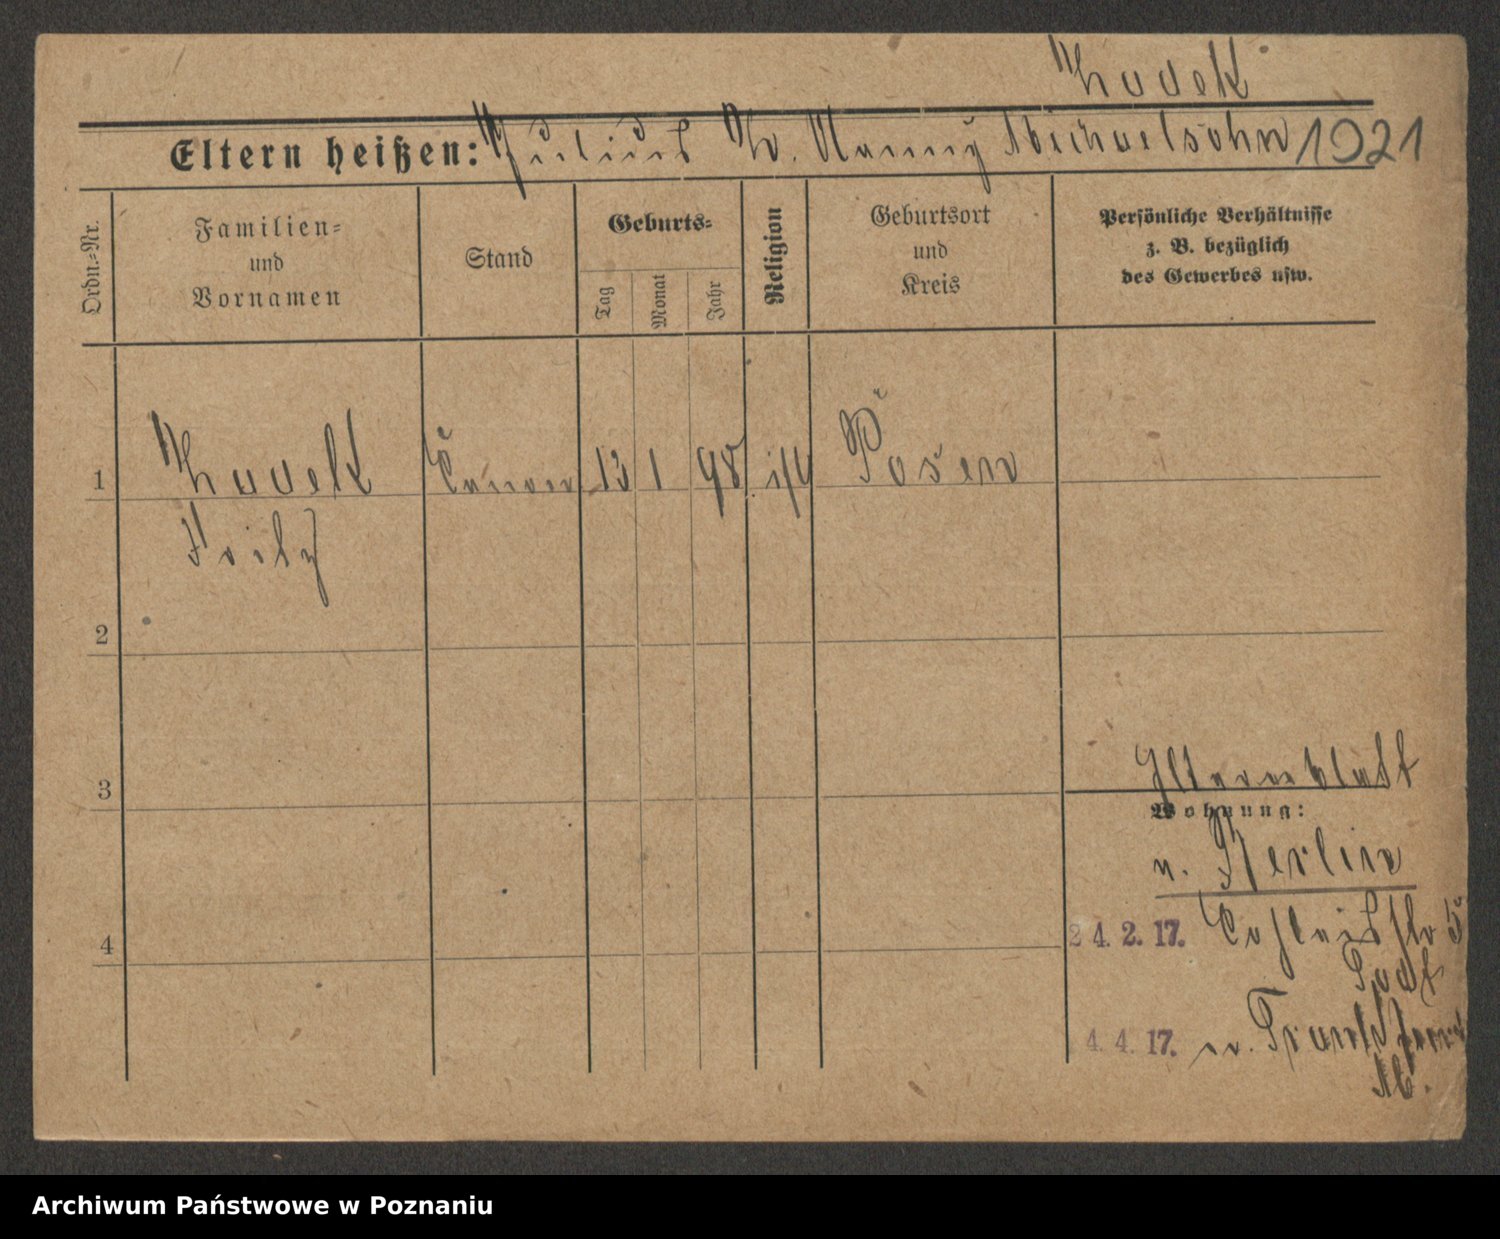 1921
Eltern heißen: Julius Nanny Michaelsohn
Ordn.-Nr.
Familien-
und
Vornamen
Stand
Geburts-
Tag
Monat
Jahr
Religion
Geburtsort
und
Kreis
Persönliche Verhältnisse
z. B. bezüglich
des Gewerbes usw.
1 13 1 98 Posen
Fritz
2
3
Wohnung:
n. Berlin
4
24.2.17.
4.4.17. Frankfurt
Archiwum Państwowe w Poznaniu